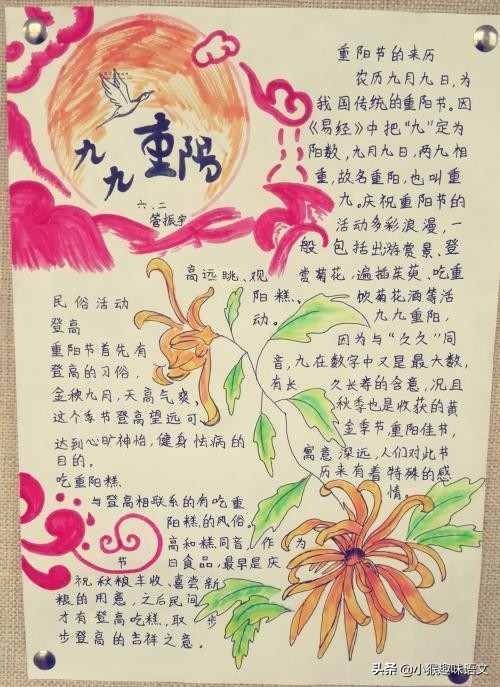 九九重阳
六、二
管振宇
重阳节的来历
农历九月九日，为
我国传统的重阳节。因
《易经》中把“九”定为
阳数，九月九日，两九相
重，故名重阳，也叫重
九。庆祝重阳节的
活动多彩浪漫，一
般包括出游赏景、登
高远眺、观赏菊花，遍插茱萸、吃重
阳糕、饮菊花酒等活
动。九九重阳，
因为与“久久”同
音，九在数字中又是最大数，
有长久长寿的含意，况且
秋季也是收获的黄
金季节重阳佳节，
寓意深远，人们对此节
历来有着特殊的感
情。
民俗活动
登高
重阳节首先有
登高的习俗，
金秋九月，天高气爽
这个季节登高望远可
达到心旷神怡，健身怯病的
目的。
吃重阳糕
与登高相联系的有吃重
阳糕的风俗。
高和糕同音，作为
节日食品，最早是庆
祝秋粮丰收、喜尝新
粮的用意，之后民间
才有登高吃糕，取步
步登高的吉祥之意。
头条@小猴趣味语文